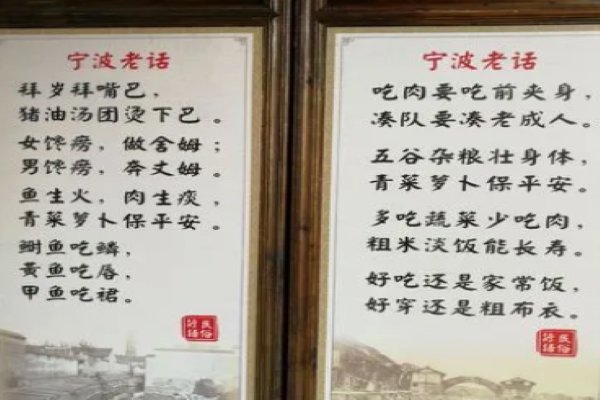 宁波老话
拜岁拜嘴巴，
猪油汤团烫下巴。
女馋痨，做舍姆；
男馋痨，奔丈姆。
鱼生火，肉生痰，
青菜萝卜保平安。
鲥鱼吃鳞，
黄鱼吃唇，
甲鱼吃裙。
民俗
谚语
宁波老话
吃肉要吃前夹身，
凑队要凑老成人。
五谷杂粮壮身体，
青菜萝卜保平安。
多吃蔬菜少吃肉，
粗米淡饭能长寿。
好吃还是家常饭，
好穿还是粗布衣。
民俗
谚语